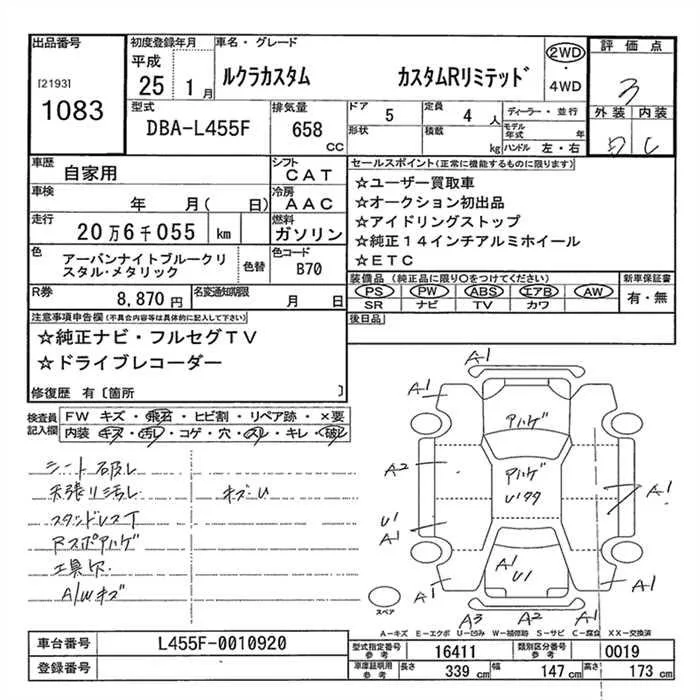 出品番号
[2193]
1083
初度登録年月
平成
25年 1月
車名・グレード
ルクラカスタム カスタムRリミテッド
2WD
・
4WD
評価点
3
外装 内装
D C
型式
DBA-L455F
排気量
658
CC
ドア 5
形状
定員 4 人
積載 kg
ディーラー・並行
モデル年式 年
ハンドル 左・右
車歴 自家用
シフト CAT
車検 年 月( 日)
冷房 AAC
走行 20万6千055 km
燃料 ガソリン
色 アーバンナイトブルークリスタル・メタリック
色替
色コード B70
R券 8,870円
名変通知期限 月 日
セールスポイント(正常に機能するものに限ります)
☆ユーザー買取車
☆オークション初出品
☆アイドリングストップ
☆純正14インチアルミホイール
☆ETC
装備品 (純正品に限り○をつけてください)
PS PW ABS エアB AW
SR ナビ TV カワ
新車保証書
有・無
後日品
注意事項申告欄(不具合内容等は具体的に記入して下さい)
☆純正ナビ・フルセグTV
☆ドライブレコーダー
修復歴 有〔箇所 〕
検査員記入欄
FW キズ・飛石・ヒビ割・リペア跡・×要
内装 キズ・汚レ・コゲ・穴・スレ・キレ・破レ
シート破レ
天張リ汚レ キズ・U
工具欠
A/Wキズ
A1
A1
A1
アハゲ
アハゲ
U
A2
U1
A1
A1
A1
U1
A1
A1
A3 A2
スペア
A−キズ E−エクボ U−凹ミ W−補修跡 S−サビ C−腐食 XX−交換済
車台番号 L455F-0010920
登録番号
型式指定番号 参考 16411
類別区分番号 参考 0019
車庫証明用 参考 長さ 339 cm 幅 147 cm 高さ 173 cm